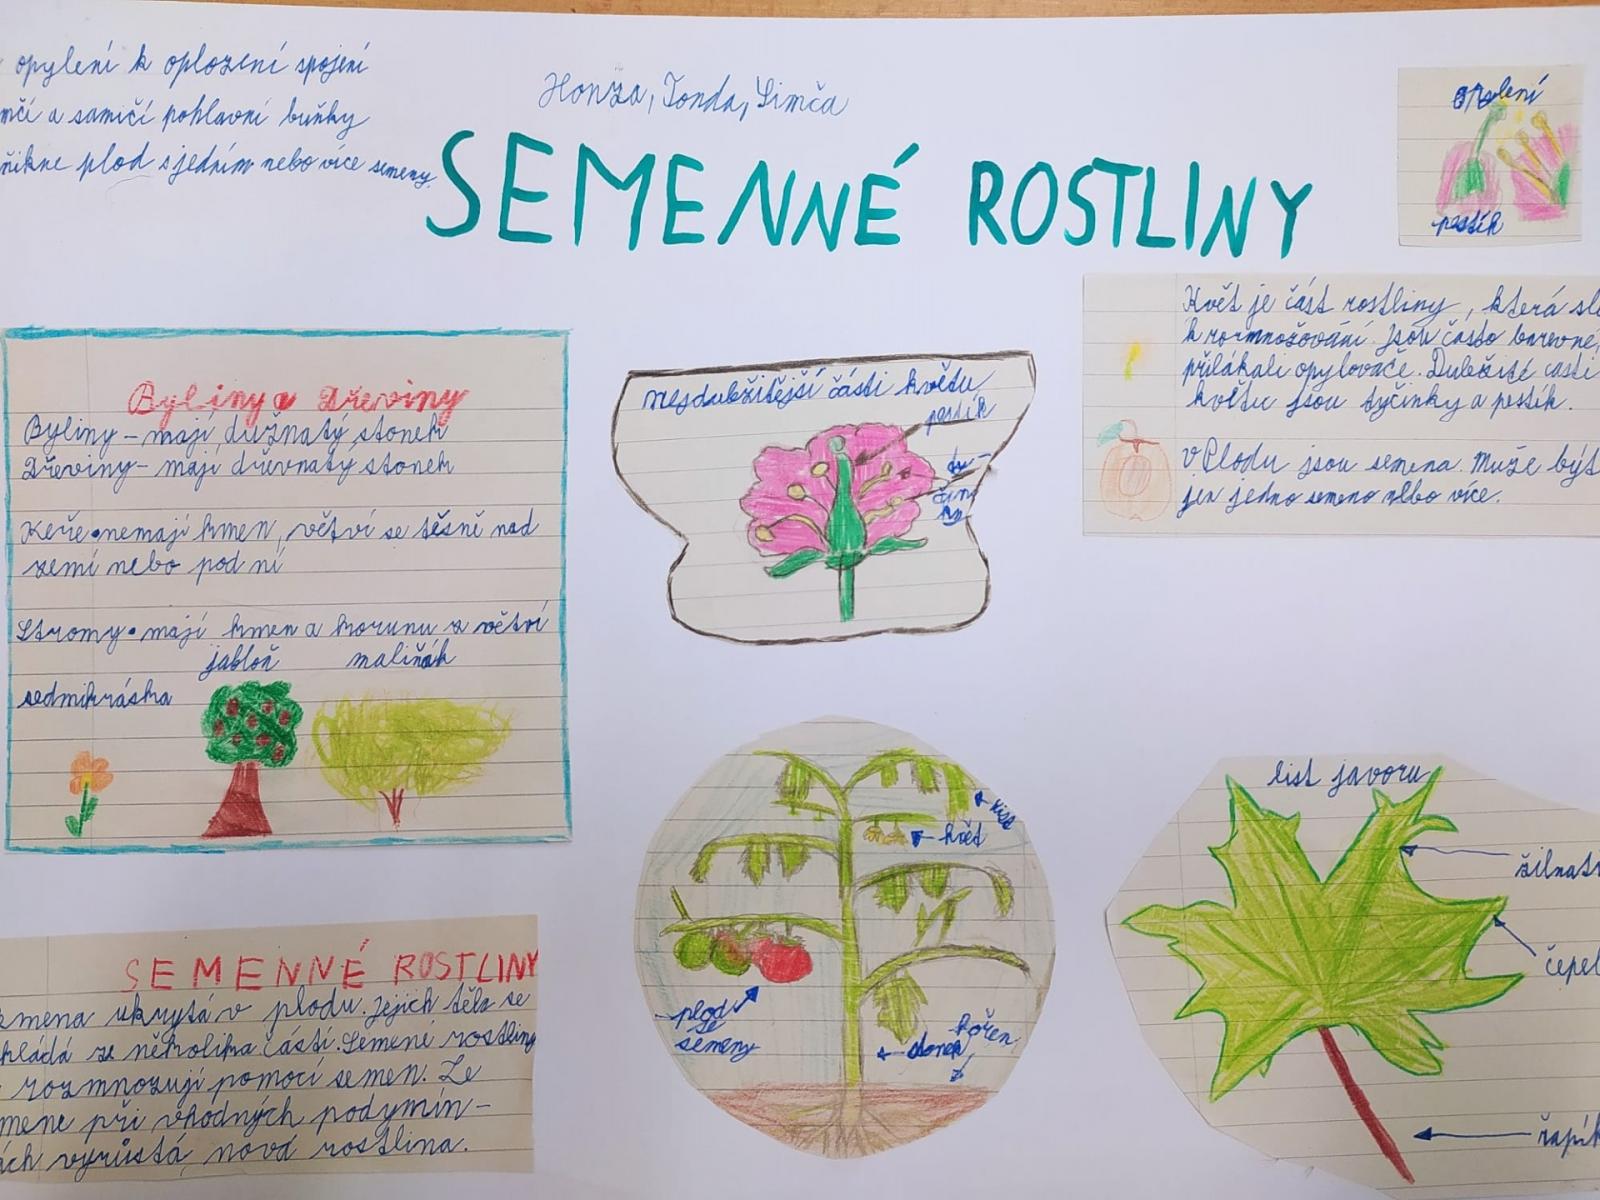 opylení k oplození spojení
mčí a samičí pohlavní buňky
nikne plod s jedním nebo více semeny.
Honza, Tonda, Simča
SEMENNÉ ROSTLINY
opylení
pestík
Květ je část rostliny, která sl
k rozmnožování. Jsou často barevné,
přilákali opylovače. Duležité časti
květu jsou tyčinky a pestík.
v Plodu jsou semena. Muže být
jen jedno semeno nebo více.
Byliny a Dřeviny
Byliny - mají dužnatý stonek
Dřeviny - mají dřevnatý stonek
Keře • nemají kmen, větví se těsně nad
zemí nebo pod ní
Stromy • mají kmen a korunu z větví
jabloň maliňák
sedmikráska
nejduležitější části květu
pestík
ty-
čin
ky
list
květ
plod
se
semeny
stonek
kořen
list javoru
žilnat
čepel
řapík
SEMENNÉ ROSTLINY
emena ukrytá v plodu. Jejich tělo se
kládá ze několika částí. Semené rostliny
rozmnozují pomocí semen. Ze
mene při vhodných podymín-
ách vyrůstá nová rostlina.